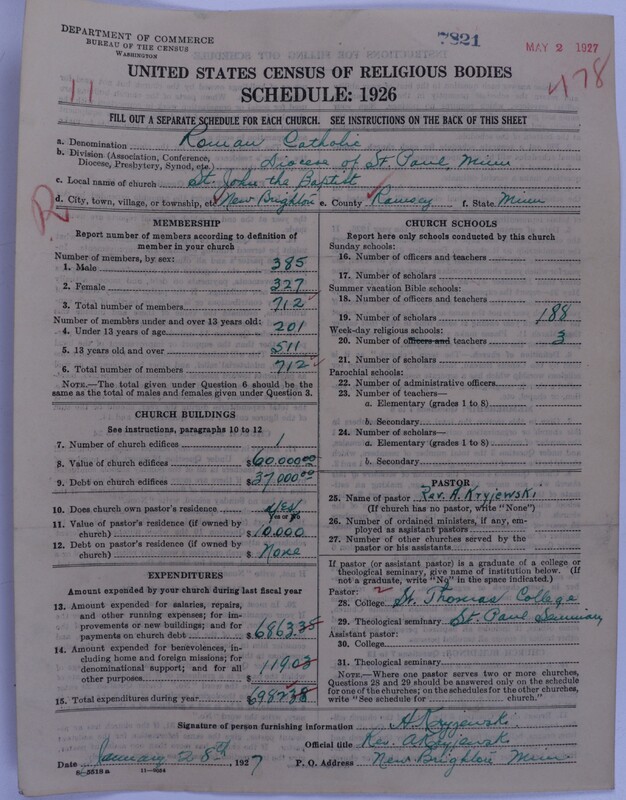 DEPARTMENT OF COMMERCE
BUREAU OF THE CENSUS
WASHINGTON
7821
MAY 2 1927
11
478
UNITED STATES CENSUS OF RELIGIOUS BODIES
SCHEDULE: 1926
FILL OUT A SEPARATE SCHEDULE FOR EACH CHURCH. SEE INSTRUCTIONS ON THE BACK OF THIS SHEET
a. Denomination Roman Catholic
b. Division (Association, Conference, Diocese, Presbytery, Synod, etc.) Diocese of St Paul, Minn
c. Local name of church St. John the Baptist
d. City, town, village, or township, etc. New Brighton e. County Ramsey f. State Minn
R
MEMBERSHIP
Report number of members according to definition of
member in your church
Number of members, by sex:
1. Male 385
2. Female 327
3. Total number of members 712
Number of members under and over 13 years old:
4. Under 13 years of age 201
5. 13 years old and over 511
6. Total number of members 712
NOTE.—The total given under Question 6 should be
same as the total of males and females given under Question 3.
CHURCH BUILDINGS
See instructions, paragraphs 10 to 12
7. Number of church edifices 1
8. Value of church edifices $60.000.00
9. Debt on church edifices $37,000.00
10. Does church own pastor's residence yes
Yes or No
11. Value of pastor's residence (if owned by
church) $10.000
12. Debt on pastor's residence (if owned by
church) $None
EXPENDITURES
Amount expended by your church during last fiscal year
13. Amount expended for salaries, repairs,
and other running expenses; for im-
provements or new buildings; and for
payments on church debt $6863.35
14. Amount expended for benevolences, in-
cluding home and foreign missions; for
denominational support; and for all
other purposes $119.03
15. Total expenditures during year $6982.38
CHURCH SCHOOLS
Report here only schools conducted by this church
Sunday schools:
16. Number of officers and teachers
17. Number of scholars
Summer vacation Bible schools:
18. Number of officers and teachers
19. Number of scholars 188
Week-day religious schools:
20. Number of officers and teachers 3
21. Number of scholars
Parochial schools:
22. Number of administrative officers
23. Number of teachers—
a. Elementary (grades 1 to 8)
b. Secondary
24. Number of scholars—
a. Elementary (grades 1 to 8)
b. Secondary
PASTOR
25. Name of pastor Rev. A. Kryjewski
(If church has no pastor, write "None")
26. Number of ordained ministers, if any, em-
ployed as assistant pastors
27. Number of other churches served by the
pastor or his assistants
If pastor (or assistant pastor) is a graduate of a college or
theological seminary, give name of institution below. (If
not a graduate, write "No" in the space indicated.)
Pastor: 2
28. College St. Thomas College
29. Theological seminary St. Paul Seminary
Assistant pastor:
30. College
31. Theological seminary
NOTE.—Where one pastor serves two or more churches,
Questions 28 and 29 should be answered only on the schedule
for one of the churches; on the schedules for the other churches,
write "See schedule for church."
Signature of person furnishing information A. Kryjewski
Official title Rev. A Kryjewski
Date January 28th 1927 P. O. Address New Brighton Minn
8—5518a 11—9064